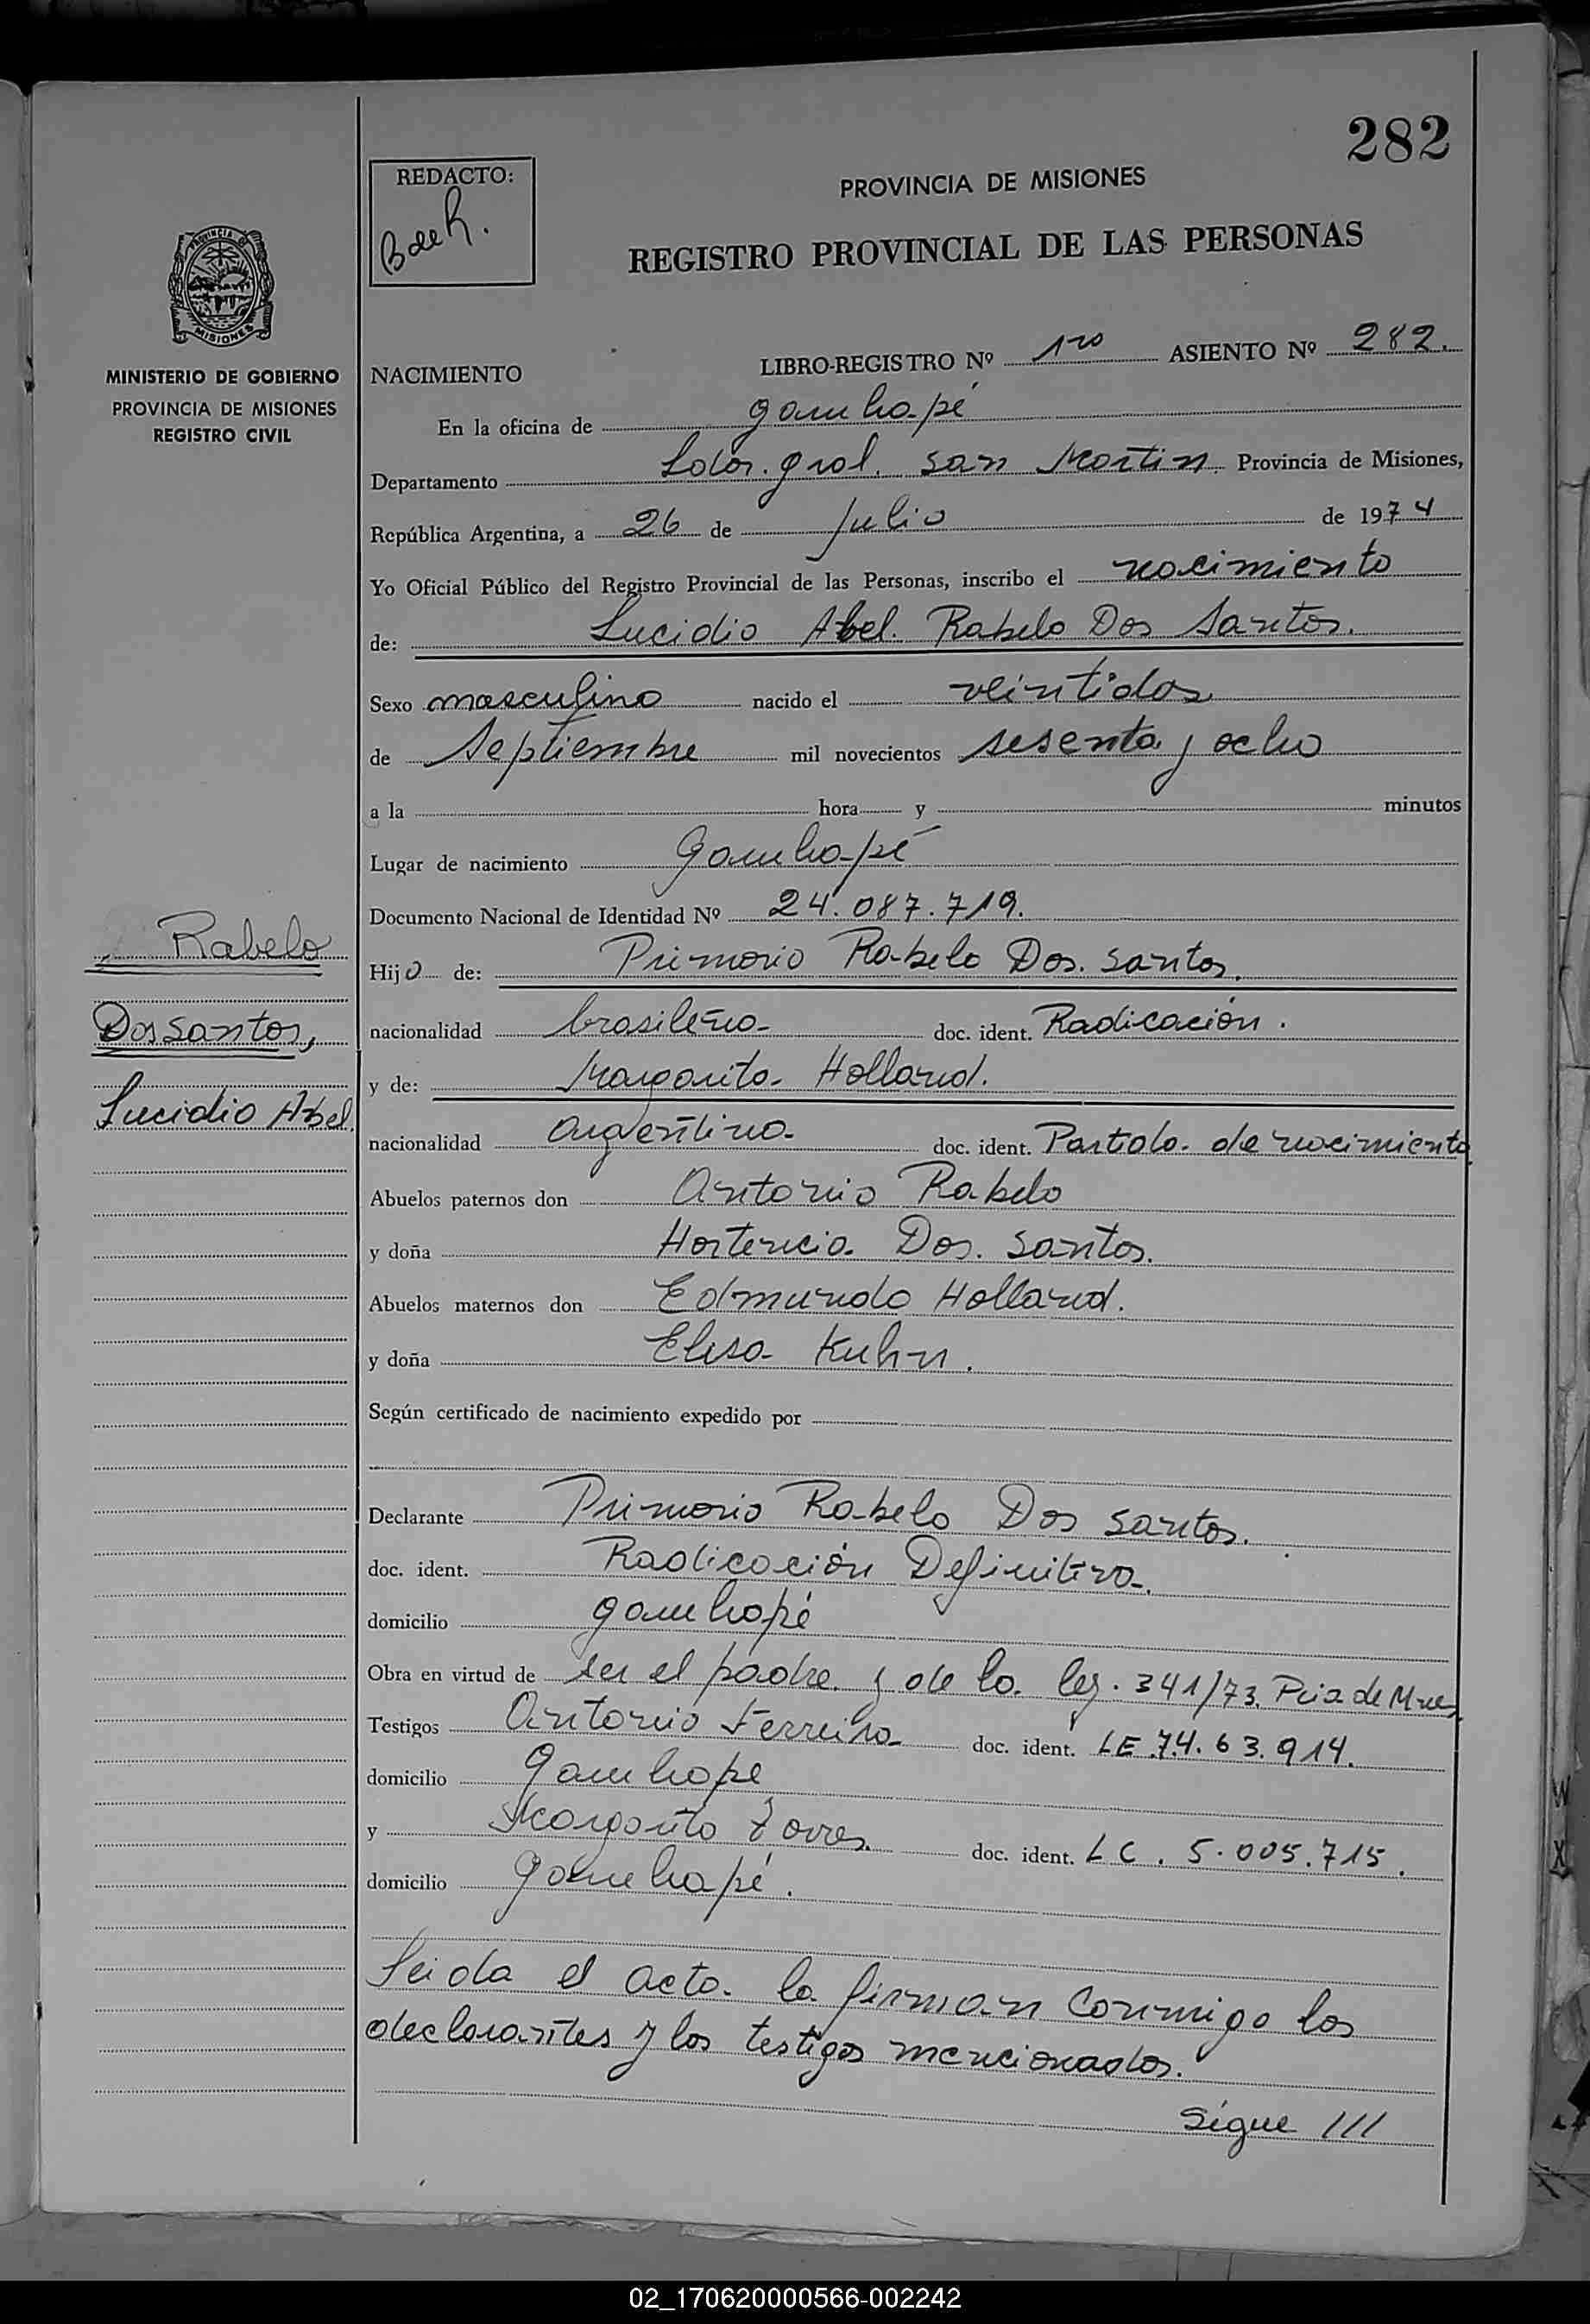 282
REDACTO:
B de R.
PROVINCIA DE MISIONES
REGISTRO PROVINCIAL DE LAS PERSONAS
PROVINCIA DE
MISIONES
MINISTERIO DE GOBIERNO
PROVINCIA DE MISIONES
REGISTRO CIVIL
NACIMIENTO LIBRO-REGISTRO Nº 1ro ASIENTO Nº 282.
En la oficina de Garuhapé
Departamento Ldor. Gral. San Martin. Provincia de Misiones,
República Argentina, a 26 de Julio de 1974
Yo Oficial Público del Registro Provincial de las Personas, inscribo el nacimiento
de: Lucidio Abel. Rabelo Dos Santos.
Sexo masculino nacido el veintidos
de Septiembre mil novecientos sesenta y ocho
a la hora y minutos
Lugar de nacimiento Garuhapé
Documento Nacional de Identidad Nº 24.087.719.
Hijo de: Primorio Rabelo Dos. Santos.
nacionalidad brasileña doc. ident. Radicación.
y de: Margarita Holland.
nacionalidad argentina doc. ident. Partida de nacimiento
Abuelos paternos don Antonio Rabelo
y doña Hortencia Dos. Santos.
Abuelos maternos don Edmundo Holland.
y doña Elisa Kuhn.
Según certificado de nacimiento expedido por
Declarante Primorio Rabelo Dos Santos.
doc. ident. Radicación Definitiva.
domicilio Garuhapé
Obra en virtud de ser el padre y de la ley. 341/73. Pcia de Mnes.
Testigos Antonio Ferreira doc. ident. LE 7.4.63.914.
domicilio Garuhape
y Margarita Torres. doc. ident. LC. 5.005.715.
domicilio Garuhapé.
Leida el acta la firman conmigo los
declarantes y los testigos mencionados.
Sigue ///
Rabelo
Dos Santos,
Lucidio Abel.
02_170620000566-002242